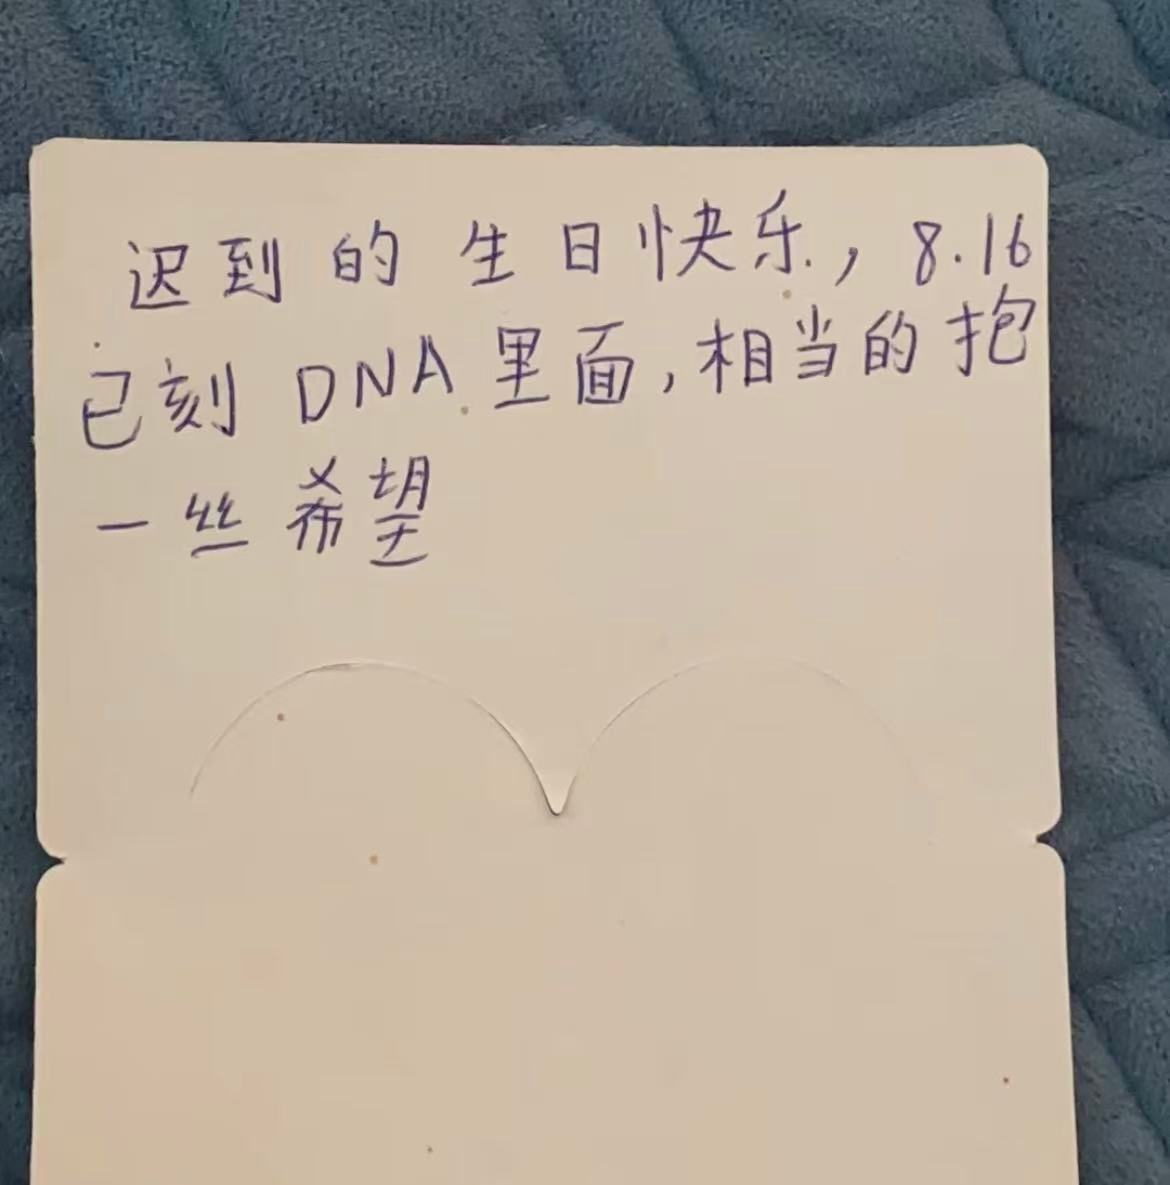 迟到的生日快乐，8.16
已刻DNA里面，相当的抱
一丝希望